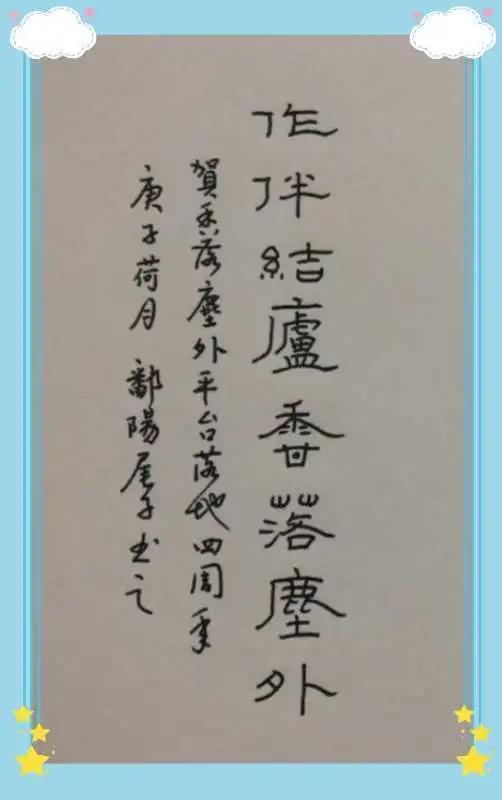 作伴結廬香落塵外
賀香落塵外平台落地四周年
庚子荷月 鄱陽尾子书之